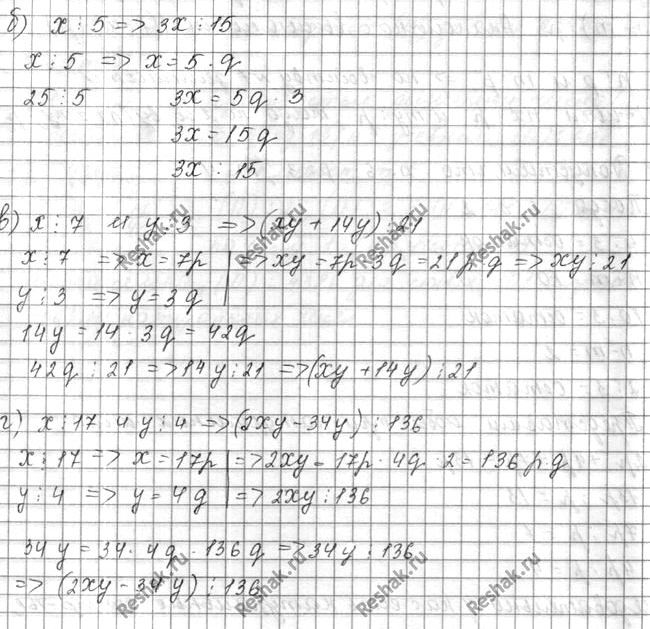 б) x ⋮ 5 => 3x ⋮ 15
x ⋮ 5 => x = 5 · q
25 ⋮ 5 3x = 5q · 3
3x = 15q
3x ⋮ 15
в) x ⋮ 7 и y ⋮ 3 => (xy + 14y) ⋮ 21
x ⋮ 7 => x = 7p | => xy = 7p · 3q = 21p · q => xy ⋮ 21
y ⋮ 3 => y = 3q
14y = 14 · 3q = 42q
42q ⋮ 21 => 14y ⋮ 21 => (xy + 14y) ⋮ 21
г) x ⋮ 17 и y ⋮ 4 => (2xy - 34y) ⋮ 136
x ⋮ 17 => x = 17p | => 2xy = 17p · 4q · 2 = 136 p · q
y ⋮ 4 => y = 4q | => 2xy ⋮ 136
34y = 34 · 4q · 136q => 34y ⋮ 136
=> (2xy - 34y) ⋮ 136
Reshak.ru
Reshak.ru
Reshak.ru
Reshak.ru
Reshak.ru
Reshak.ru
Reshak.ru
Reshak.ru